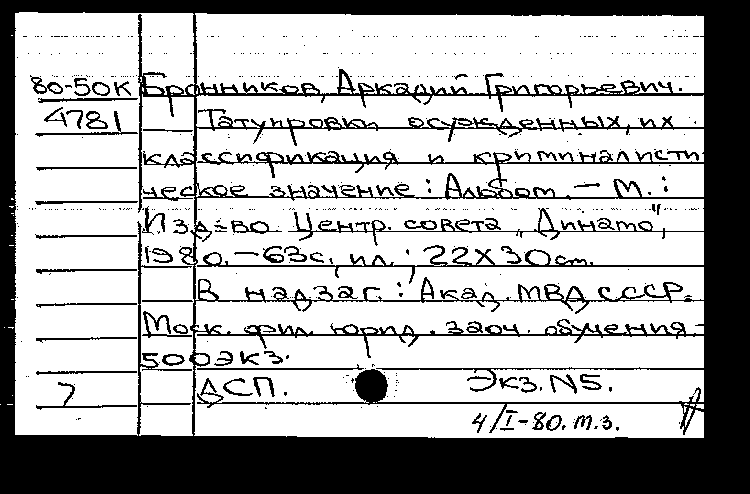 80-50К Бронников, Аркадий Григорьевич.
4781 Татуировки осужденных, их
классификация и криминалисти
ческое значение: Альбом. — М.:
Изд-во Центр. совета „Динамо",
1980. — 63с., ил.; 22X30см.
В надзаг.: Акад. МВД СССР.
Моск. фил. юрид. заоч. обучения. -
500экз.
ДСП. Экз. N5.
4/I-80. т.з.